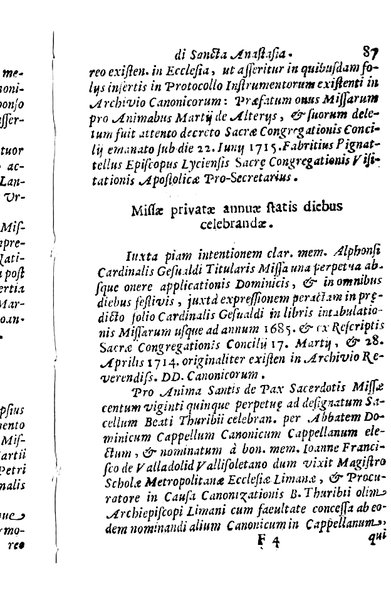 di Sancta Anastasia. 87
reo existen. in Ecclesia, ut asseritur in quibusdam fo-
lys insertis in Protocollo Instrumentorum existenti in
Archivio Canonicorum: Præfatum onus Missarum
pro Animabus Martij de Alterys, & suorum dele-
tum fuit attento decreto Sacræ Congregationis Conci-
lij emanato sub die 22. Iunij 1715. Fabritius Pignat-
tellus Episcopus Lyciensis Sacrę Congregationis Visi-
tationis Apostolicæ Pro-Secretarius.
Missæ privatæ annuæ statis diebus
celebrandæ.
Iuxta piam intentionem clar. mem. Alphonsi
Cardinalis Gesualdi Titularis Missa una perpetua ab-
sque onere applicationis Dominicis, & in omnibus
diebus festivis, juxtà expressionem peractam in prę-
dicto folio Cardinalis Gesualdi in libris intabulatio-
nis Missarum usque ad annum 1685. & ex Rescriptis
Sacræ Congregationis Concilij 17. Martij, & 28.
Aprilis 1714. originaliter existen in Archivio Re-
verendiss. DD. Canonicorum.
Pro Anima Santis de Pax Sacerdotis Missæ
centum viginti quinque perpetuę ad designatum Sa-
cellum Beati Thuribii celebran. per Abbatem Do-
minicum Cappellum Canonicum Cappellanum ele-
ctum, & nominatum à bon. mem. Ioanne Franci-
sco de Valladolid Vallisoletano dum vixit Magistro
Scholæ Metropolitanæ Ecclesiæ Limanæ, & Procu-
ratore in Causa Canonizationis B. Thuribii olim
Archiepiscopi Limani cum facultate concessa ab eo-
dem nominandi alium Canonicum in Cappellanum,
F 4 qui
me-
noni-
onso
asser-
tuor
ac-
Lan-
Mis-
mpre-
tati-
a post
ertia
Mar-
oan-
opsius
mento
Mis-
Martii
Petri
inalis
que
mo-
reo